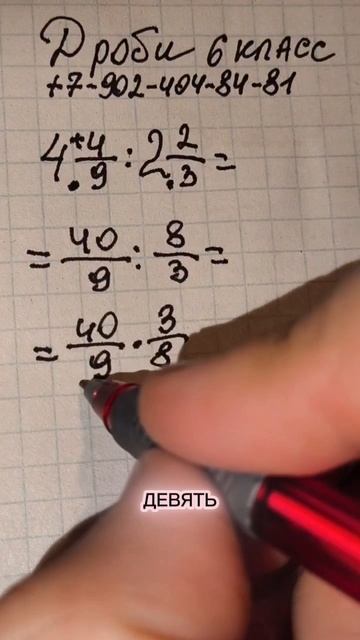 Дроби 6 класс
+7-902-404-84-81
4 + 4/9 : 2 2/3 =
= 40/9 : 8/3 =
= 40/9 · 3/8
ДЕВЯТЬ